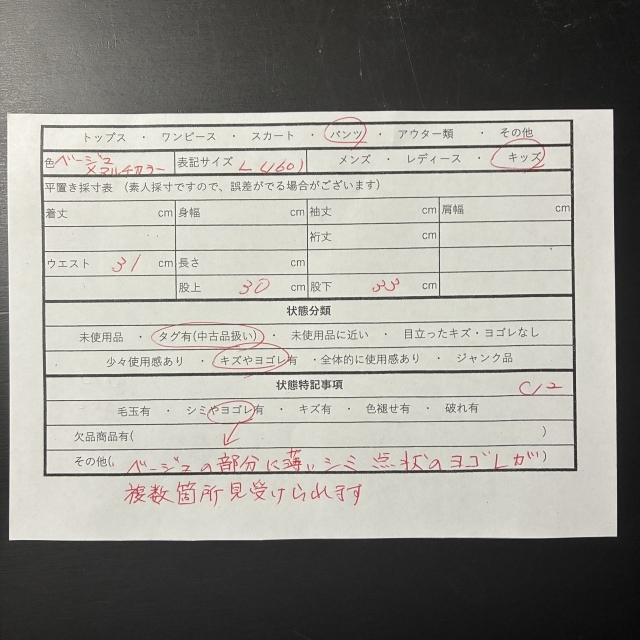 トップス ・ ワンピース ・ スカート ・ パンツ ・ アウター類 ・ その他
色 ベージュ×マルチカラー 表記サイズ L(160) メンズ ・ レディース ・ キッズ
平置き採寸表 (素人採寸ですので、誤差がでる場合がございます)
着丈 cm 身幅 cm 袖丈 cm 肩幅 cm
裄丈 cm
ウエスト 31 cm 長さ cm
股上 30 cm 股下 33 cm
状態分類
未使用品 ・ タグ有(中古品扱い) ・ 未使用品に近い ・ 目立ったキズ・ヨゴレなし
少々使用感あり ・ キズやヨゴレ有 ・全体的に使用感あり ・ ジャンク品
状態特記事項
C12
毛玉有 ・ シミやヨゴレ有 ・ キズ有 ・ 色褪せ有 ・ 破れ有
欠品商品有( )
その他( ベージュの部分に薄いシミ 点状のヨゴレが )
複数箇所見受けられます